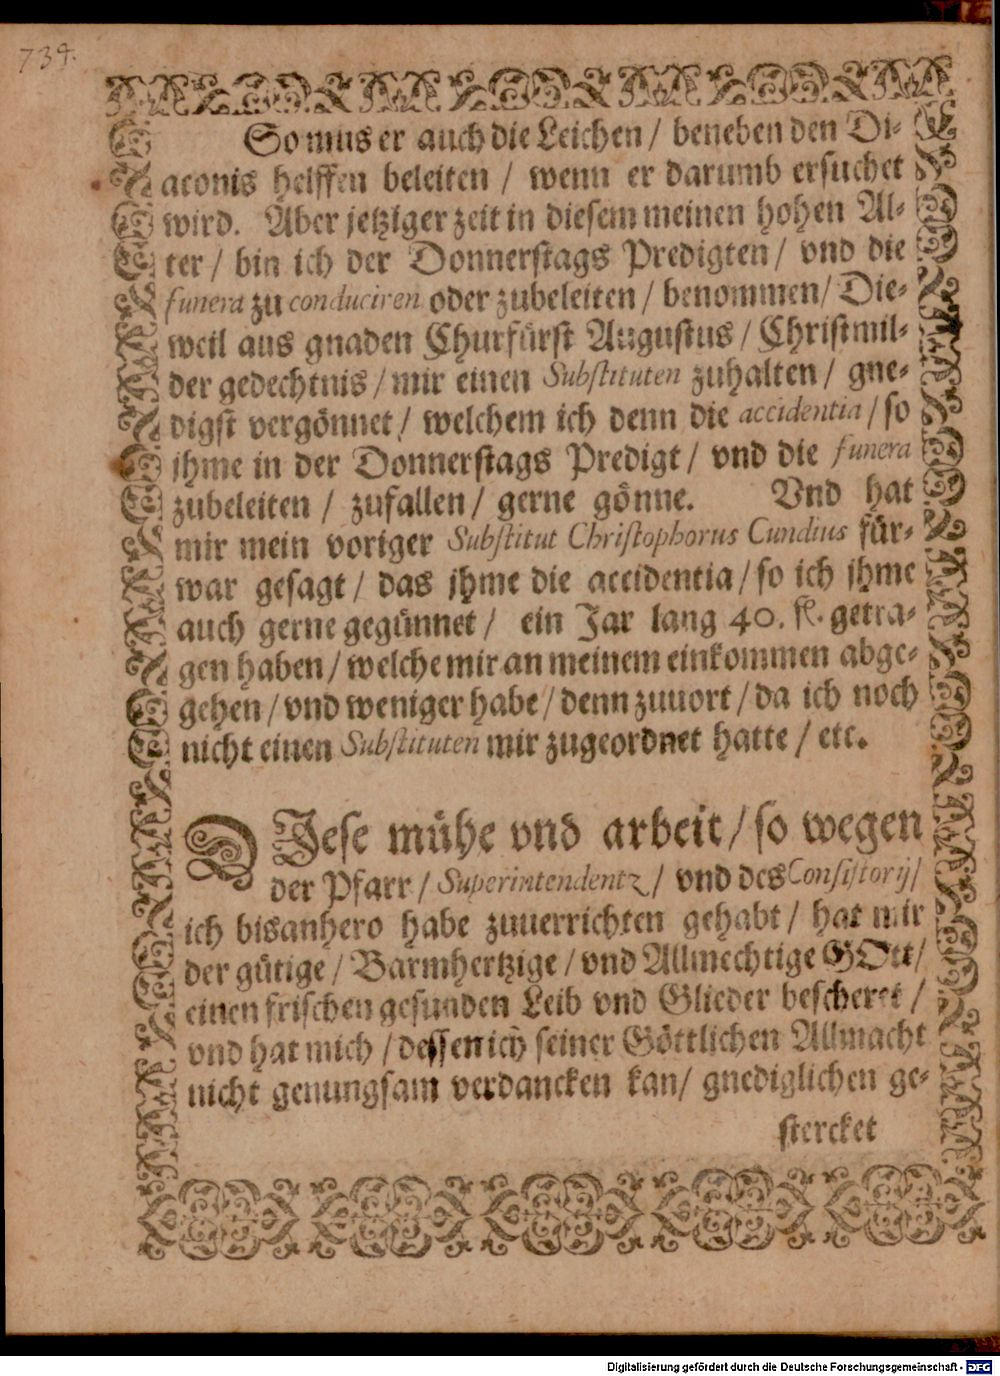 734.
So mus er auch die Leichen / beneben den Di-
aconis helffen beleiten / wenn er darumb ersuchet
wird. Aber jetziger zeit in diesem meinen hohen Al-
ter / bin ich der Donnerstags Predigten / vnd die
funera zu conduciren oder zubeleiten / benommen / Die-
weil aus gnaden Churfürst Augustus / Christmil-
der gedechtnis / mir einen Substituten zuhalten / gne-
digst vergönnet / welchem ich denn die accidentia / so
jhme in der Donnerstags Predigt / vnd die funera
zubeleiten / zufallen / gerne gönne. Vnd hat
mir mein voriger Substitut Christophorus Cundius für-
war gesagt / das jhme die accidentia / so ich jhme
auch gerne gegünnet / ein Jar lang 40. fl. getra-
gen haben / welche mir an meinem einkommen abge-
gehen / vnd weniger habe / denn zuuort / da ich noch
nicht einen Substituten mir zugeordnet hatte / etc.
DIese mühe vnd arbeit / so wegen
der Pfarr / Superintendentz / vnd des Consistorij /
ich bisanhero habe zuuerrichten gehabt / hat mir
der gütige / Barmhertzige / vnd Allmechtige GOtt /
einen frischen gesunden Leib vnd Glieder bescheret /
vnd hat mich / dessen ich seiner Göttlichen Allmacht
nicht genungsam verdancken kan / gnediglichen ge-
stercket
Digitalisierung gefördert durch die Deutsche Forschungsgemeinschaft - DFG